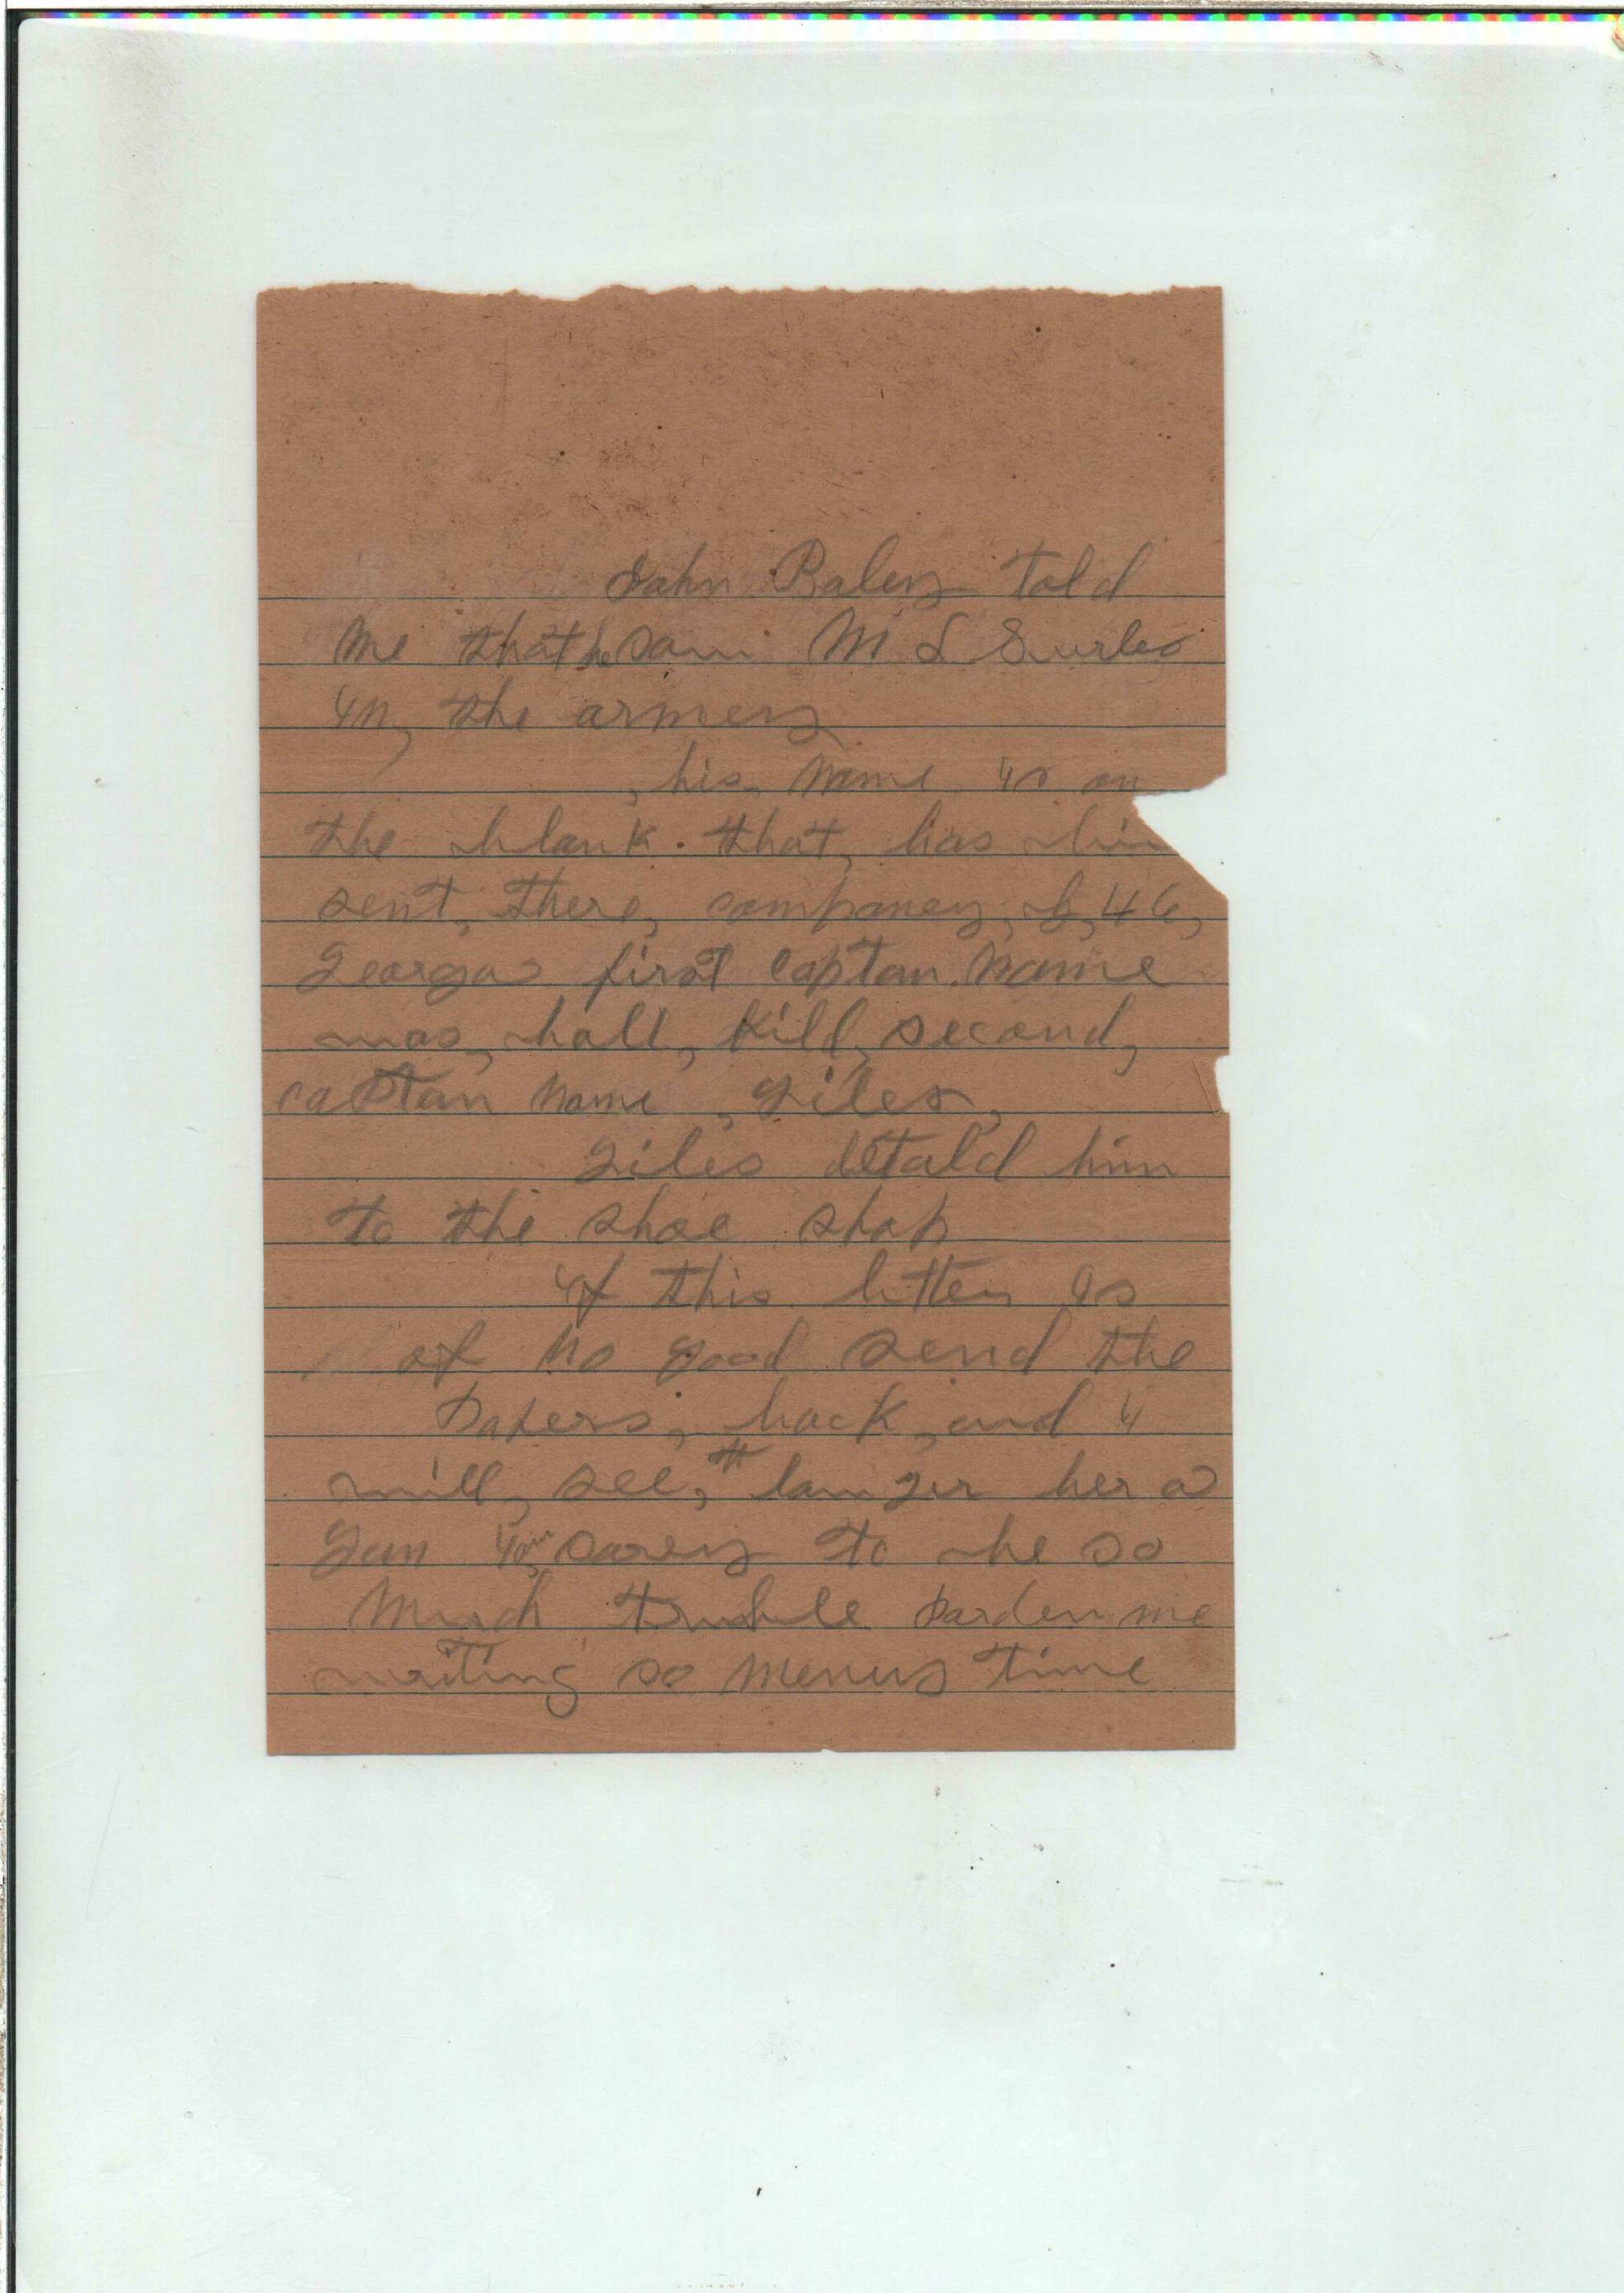 John Baley told
me that he saw M L Surles
in, the armey
, his, name is on
the blank. that, has bin
sent, there, companey, 46,
Georga first captan. name
was, hall, kill, second,
captan name, Giles,
Giles detald him
to the shoe shop
if this letter is
of no good send the
papers, back, and i
will, see,
i am sorey to be so
much truble parden me
writing so meney time